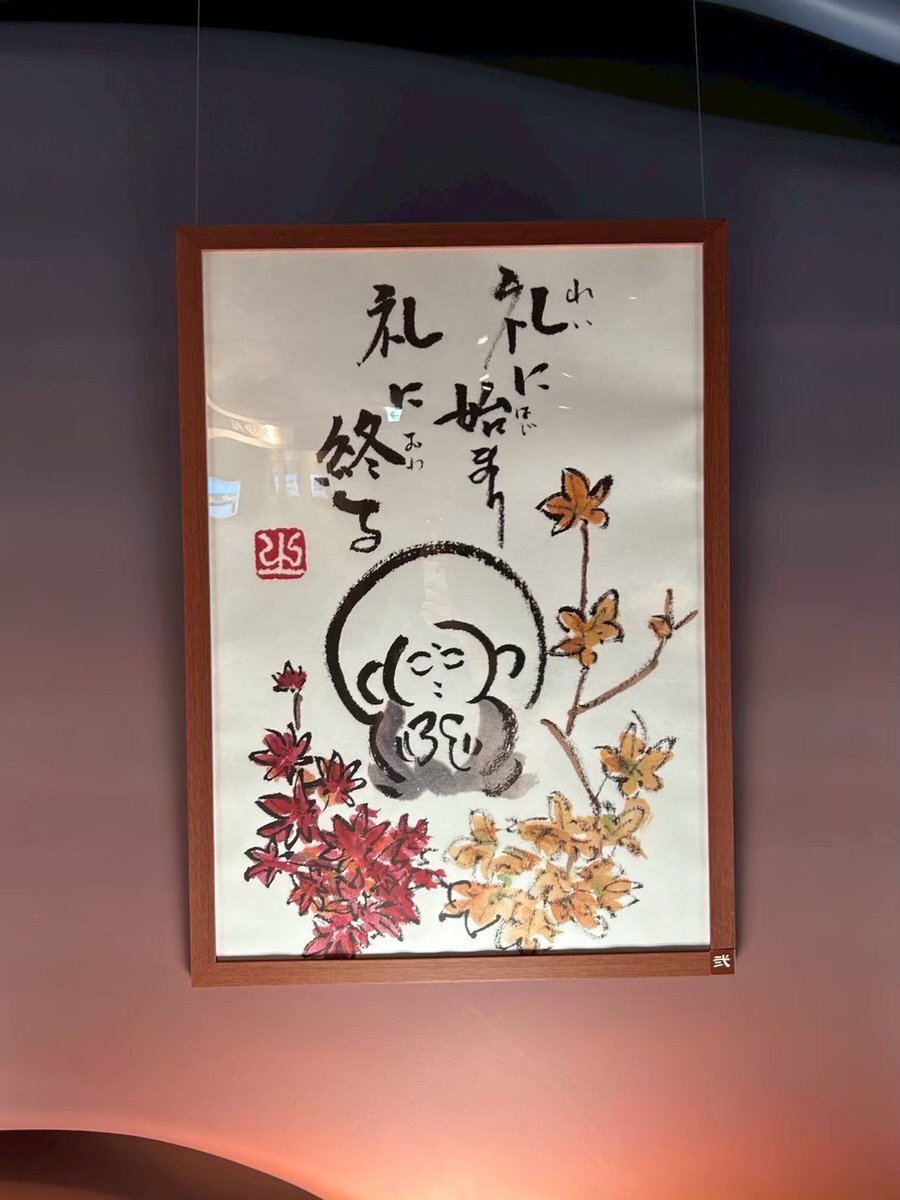 礼に始まり
れい
はじ
礼に終る
おわ
弐